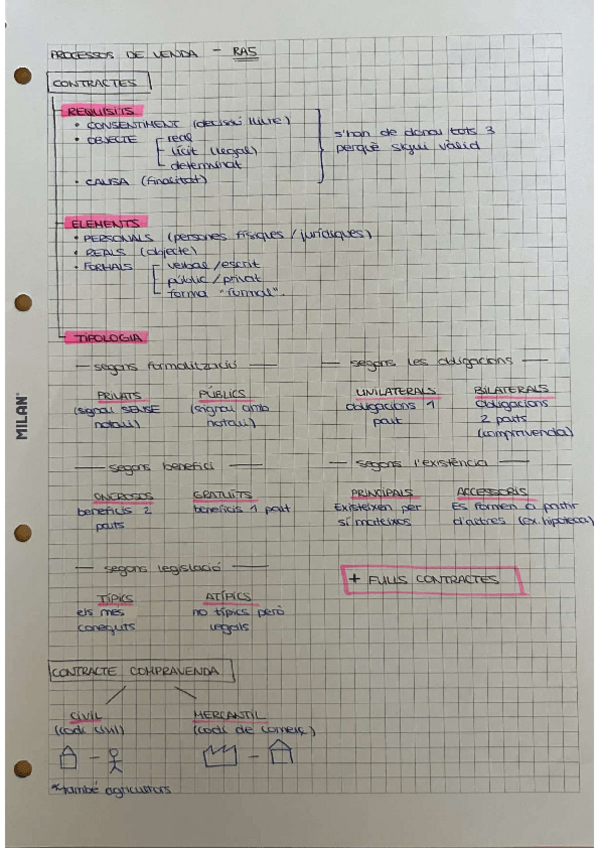 PROCESSOS DE VENDA - RA5
CONTRACTES
REQUISITS
• CONSENTIMENT (decisió lliure)
• OBJECTE real
lícit (legal)
determinat
• CAUSA (finalitat)
s'han de donar tots 3
perquè sigui vàlid
ELEMENTS
• PERSONALS (persones físiques / jurídiques)
• REALS (objecte)
• FORMALS verbal / escrit
públic / privat
forma "formal".
TIPOLOGIA
— segons formalització —
PRIVATS
(signar SENSE
notari)
PÚBLICS
(signar amb
notari)
— segons les obligacions —
UNILATERALS
obligacions 1
part
BILATERALS
obligacions
2 parts
(compravenda)
— segons benefici —
ONEROSOS
beneficis 2
parts
GRATUÏTS
beneficis 1 part
— segons l'existència —
PRINCIPALS
Existeixen per
sí mateixos
ACCESSORIS
Es formen a partir
d'altres (ex. hipoteca)
— segons legislació —
TÍPICS
els més
coneguts
ATÍPICS
no típics però
legals
+ FULLS CONTRACTES
MILAN
CONTRACTE COMPRAVENDA
CIVIL
(codi civil)
MERCANTIL
(codi de comerç)
*també agricultors